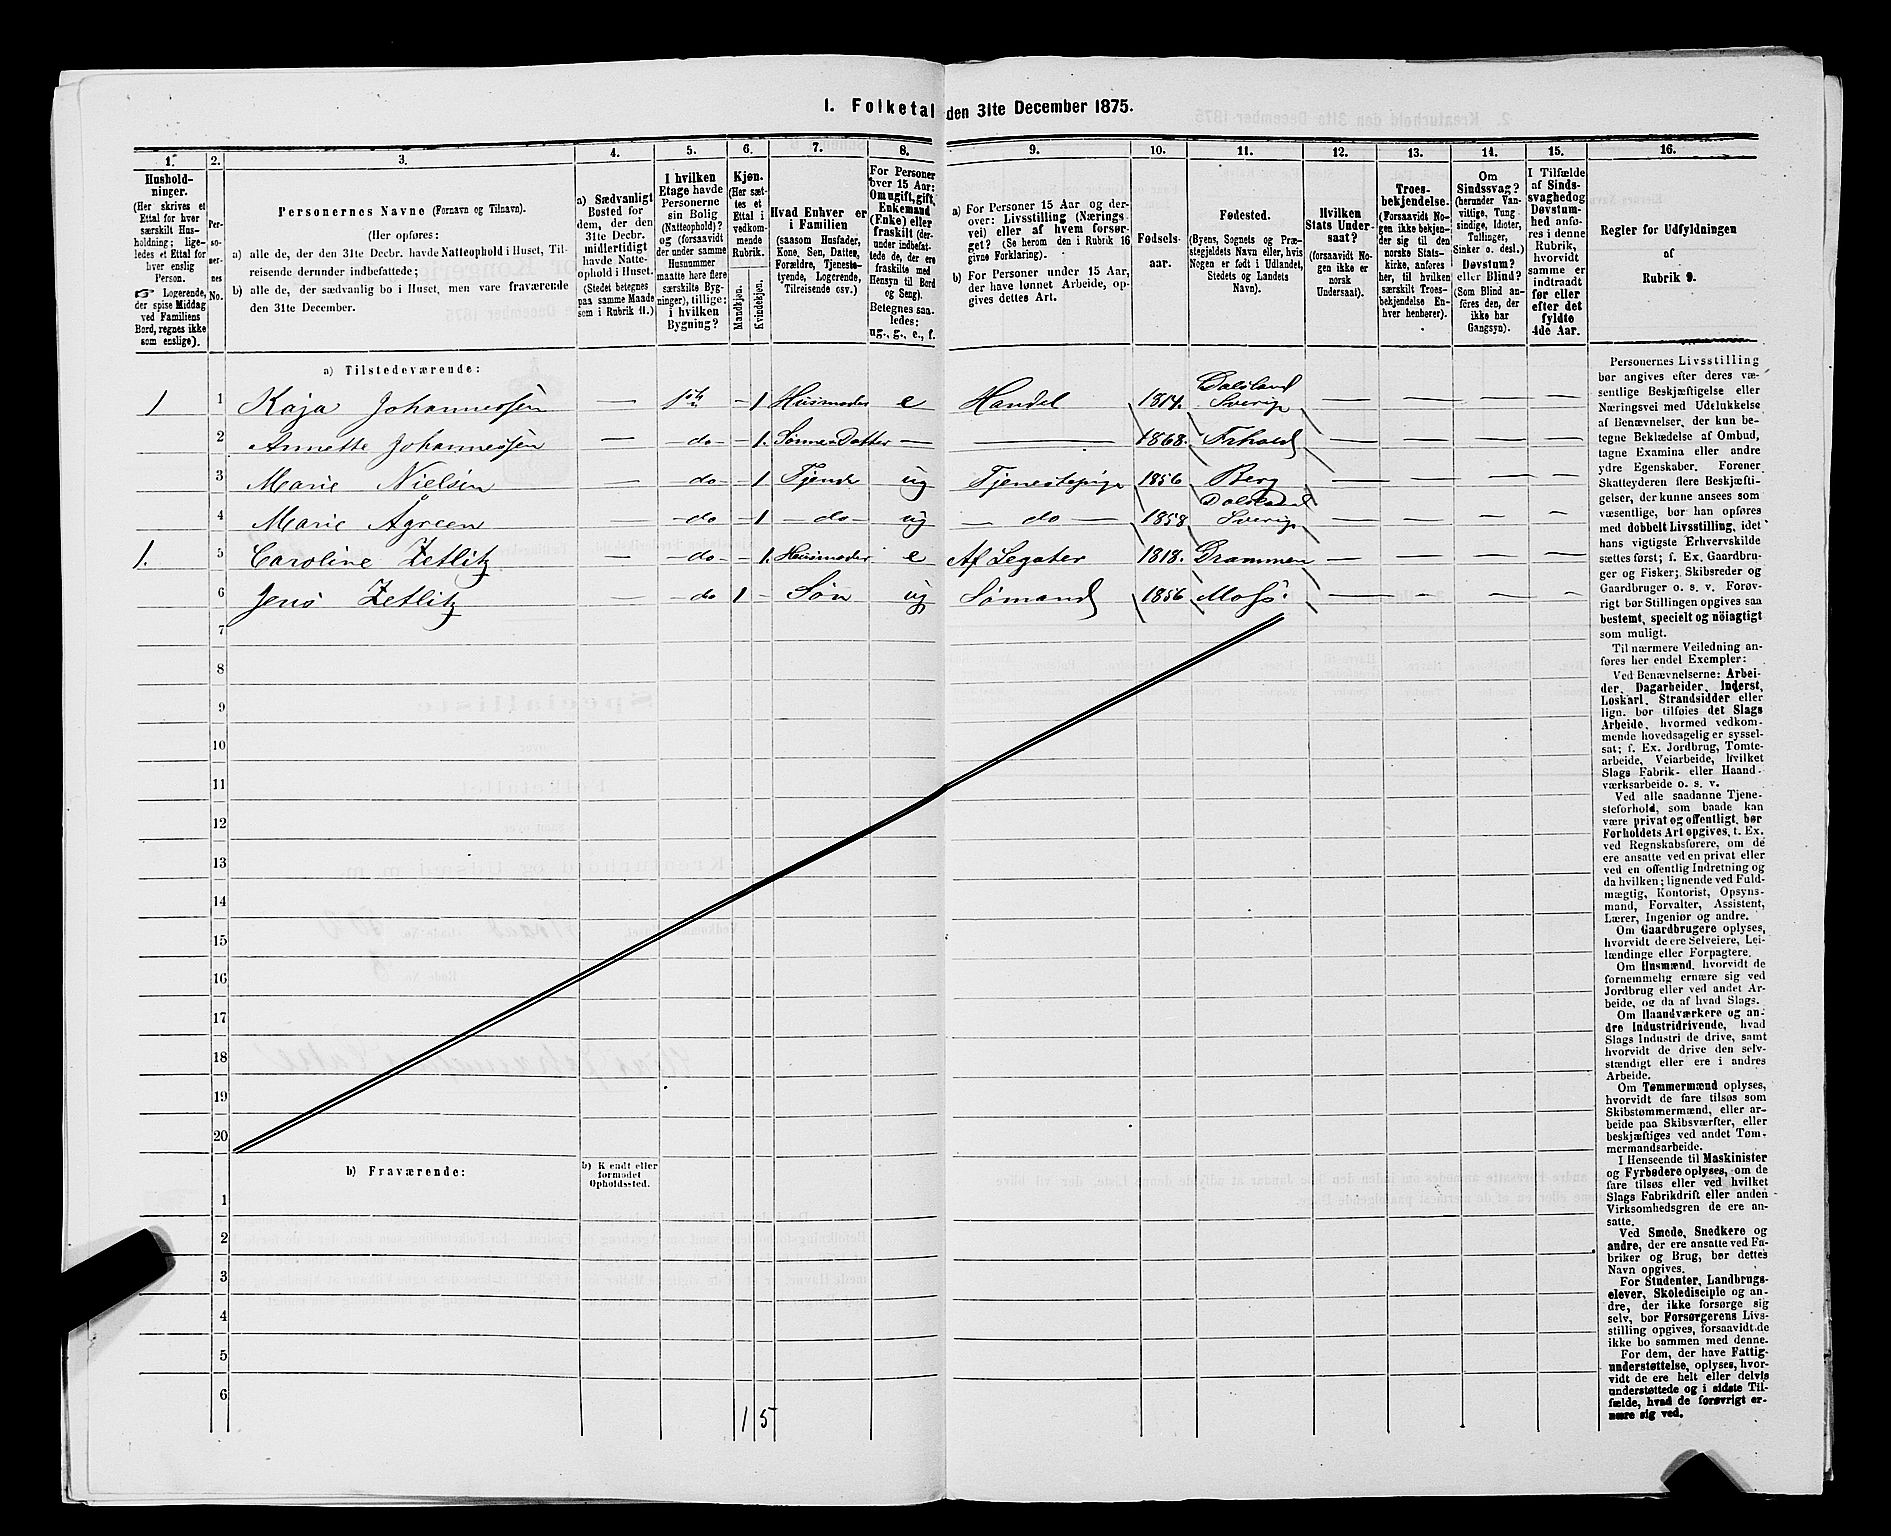 1. Folketal den 31te December 1875.
1. 2. 3. 4. 5. 6. 7. 8. 9. 10. 11. 12. 13. 14. 15. 16.
Hushold-
ninger.
(Her skrives et
Ettal for hver
særskilt Hus-
holdning; lige-
ledes et Ettal for
hver enslig
Person.
☞ Logerende,
der spise Middag
ved Familiens
Bord, regnes ikke
som enslige).
Per-
so-
ner-
nes
No.
Personernes Navne (Fornavn og Tilnavn).
(Her opføres:
a) alle de, der den 31te Decbr. havde Natteophold i Huset, Til-
reisende derunder indbefattede;
b) alle de, der sædvanlig bo i Huset, men vare fraværende
den 31te December.
a) Sædvanligt
Bosted for
dem, der den
31te Decbr.
midlertidigt
havde Natte-
ophold i Huset.
(Stedet betegnes
paa samme Maade
som i Rubrik 11.)
I hvilken
Etage havde
Personerne
sin Bolig
(Natteophold)?
og (forsaavidt
der under samme
Husnummer
maatte høre flere
særskilte Byg-
ninger), tillige:
i hvilken
Bygning?
Kjøn.
(Her sæt-
tes et
Ettal i
vedkom-
mende
Rubrik.
Mandkjøn.
Kvindekjøn.
Hvad Enhver er
i Familien
(saasom Husfader,
Kone, Søn, Datter,
Forældre, Tjeneste-
tyende, Logerende,
Tilreisende osv.)
For Personer
over 15 Aar:
Om ugift, gift,
Enkemand
(Enke) eller
fraskilt (der-
under indbefat-
tede de, der ere
fraskilte med
Hensyn til Bord
og Seng).
Betegnes saa-
ledes:
ug., g., e., f.
a) For Personer 15 Aar og der-
over: Livsstilling (Nærings-
vei) eller af hvem forsør-
get? (Se herom den i Rubrik 16
givne Forklaring).
b) For Personer under 15 Aar,
der have lønnet Arbeide, op-
gives dettes Art.
Fødsels-
aar.
Fødested.
(Byens, Sognets og Præ-
stegjeldets Navn eller, hvis
Nogen er født i Udlandet,
Stedets og Landets
Navn).
Hvilken
Stats Under-
saat?
(forsaavidt No-
gen ikke er
norsk
Undersaat).
Troes-
bekjendelse.
(Forsaavidt No-
gen ikke bekjen-
der sig til den
norske Stats-
kirke, anføres
her, til hvilken
særskilt Troes-
bekjendelse En-
hver henhører).
Om
Sindssvag?
(herunder Van-
vittige, Tung-
sindige, Idioter,
Tullinger,
Sinker o. desl.)
Døvstum?
eller Blind?
(Som Blind an-
føres den, der
ikke har
Gangsyn).
I Tilfælde
af Sinds-
svaghed og
Døvstum-
hed anfø-
res i denne
Rubrik,
hvorvidt
samme er
indtraadt
før eller
efter det
fyldte
4de Aar.
Regler for Udfyldningen
af
Rubrik 9.
a) Tilstedeværende:
1 1 Kaja Johannessen — 1ste — 1 Husmoder e Handel 1814. Dalsland Sverig — — — —
2 Annette Johannessen — do — 1. Sønne-Datter — — 1868. — — — —
3 Marie Nielsen — do — 1 Tjener ug Tjenestepige 1856 Berg — — — —
4 Marie Ågreen — do — 1 — do — ug — do — 1858 Dalsland Sverig — — — —
1. 5 Caroline Zetlitz — do — 1. Husmoder e Af Legater 1818. Drammen — — — —
6 Jens Zetlitz — do 1 — Søn ug Sømand 1856 Moss. — — — —
7
8
9
10
11
12
13
14
15
16
17
18
19
20
b) Fraværende:
b) Kjendt eller
formodet
Opholdssted.
1
2
3
4
5
6
1 5
Personernes Livsstilling
bør angives efter deres væ-
sentlige Beskjæftigelse eller
Næringsvei med Udelukkelse
af Benævnelser, der kun be-
tegne Beklædelse af Ombud,
tagne Examina eller andre
ydre Egenskaber. Forener
Skatteyderen flere Beskjæfti-
gelser, der kunne ansees som
væsentlige, bør han opføres
med dobbelt Livsstilling, idet
hans vigtigste Erhvervskilde
sættes først; f. Ex. Gaardbru-
ger og Fisker; Skibsreder og
Gaardbruger o. s. v. Forøv-
rigt bør Stillingen opgives saa
bestemt, specielt og nöiagtigt
som muligt.
Til nærmere Veiledning an-
føres her endel Exempler:
Ved Benævnelserne: Arbei-
der, Dagarbeider, Inderst,
Løskarl, Strandsidder eller
lign. bør tilføies det Slags
Arbeide, hvormed vedkom-
mende hovedsagelig er syssel-
sat; f. Ex. Jordbrug, Tomte-
arbeide, Veiarbeide, hvilket
Slags Fabrik- eller Haand-
værksarbeide o. s. v.
Ved alle saadanne Tjene-
steforhold, som baade kan
være privat og offentligt, bør
Forholdets Art opgives, t. Ex.
ved Regnskabsførere, om de
ere ansatte ved en privat eller
ved en offentlig Indretning og
da hvilken; lignende ved Fuld-
mægtig, Kontorist, Opsyns-
mand, Forvalter, Assistent,
Lærer, Ingeniør og andre.
Om Gaardbrugere oplyses,
hvorvidt de ere Selveiere, Lei-
lændinge eller Forpagtere.
Om Husmænd, hvorvidt de
fornemmelig ernære sig ved
Jordbrug eller ved andet Ar-
beide, og da af hvad Slags.
Om Haandværkere og an-
dre Industridrivende, hvad
Slags Industri de drive, samt
hvorvidt de drive den selv-
stændigt eller ere i andres
Arbeide.
Om Tømmermænd oplyses,
hvorvidt de fare tilsøs som
Skibstømmermænd, eller ar-
beide paa Skibsværfter, eller
beskjæftiges ved andet Tøm-
mermandsarbeide.
I Henseende til Maskinister
og Fyrbødere oplyses, om de
fare tilsøs eller ved hvilket
Slags Fabrikdrift eller anden
Virksomhedsgren de ere an-
satte.
Ved Smede, Snedkere og
andre, der ere ansatte ved Fa-
briker og Brug, bør dettes
Navn opgives.
For Studenter, Landbrugs-
elever, Skoledisciple og an-
dre, der ikke forsørge sig
selv, bør Forsørgerens Livs-
stilling opgives, forsaavidt de
ikke bo sammen med denne.
For dem, der have Fattig-
understøttelse, oplyses, hvor-
vidt de ere helt eller delvis
understøttede og i sidste Til-
fælde, hvad de forøvrigt er-
nære sig ved.